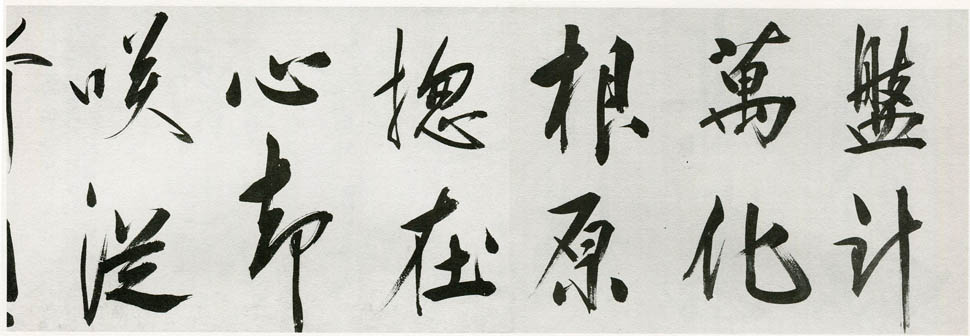 盤針
萬化
根原
揔在
心却
咲從